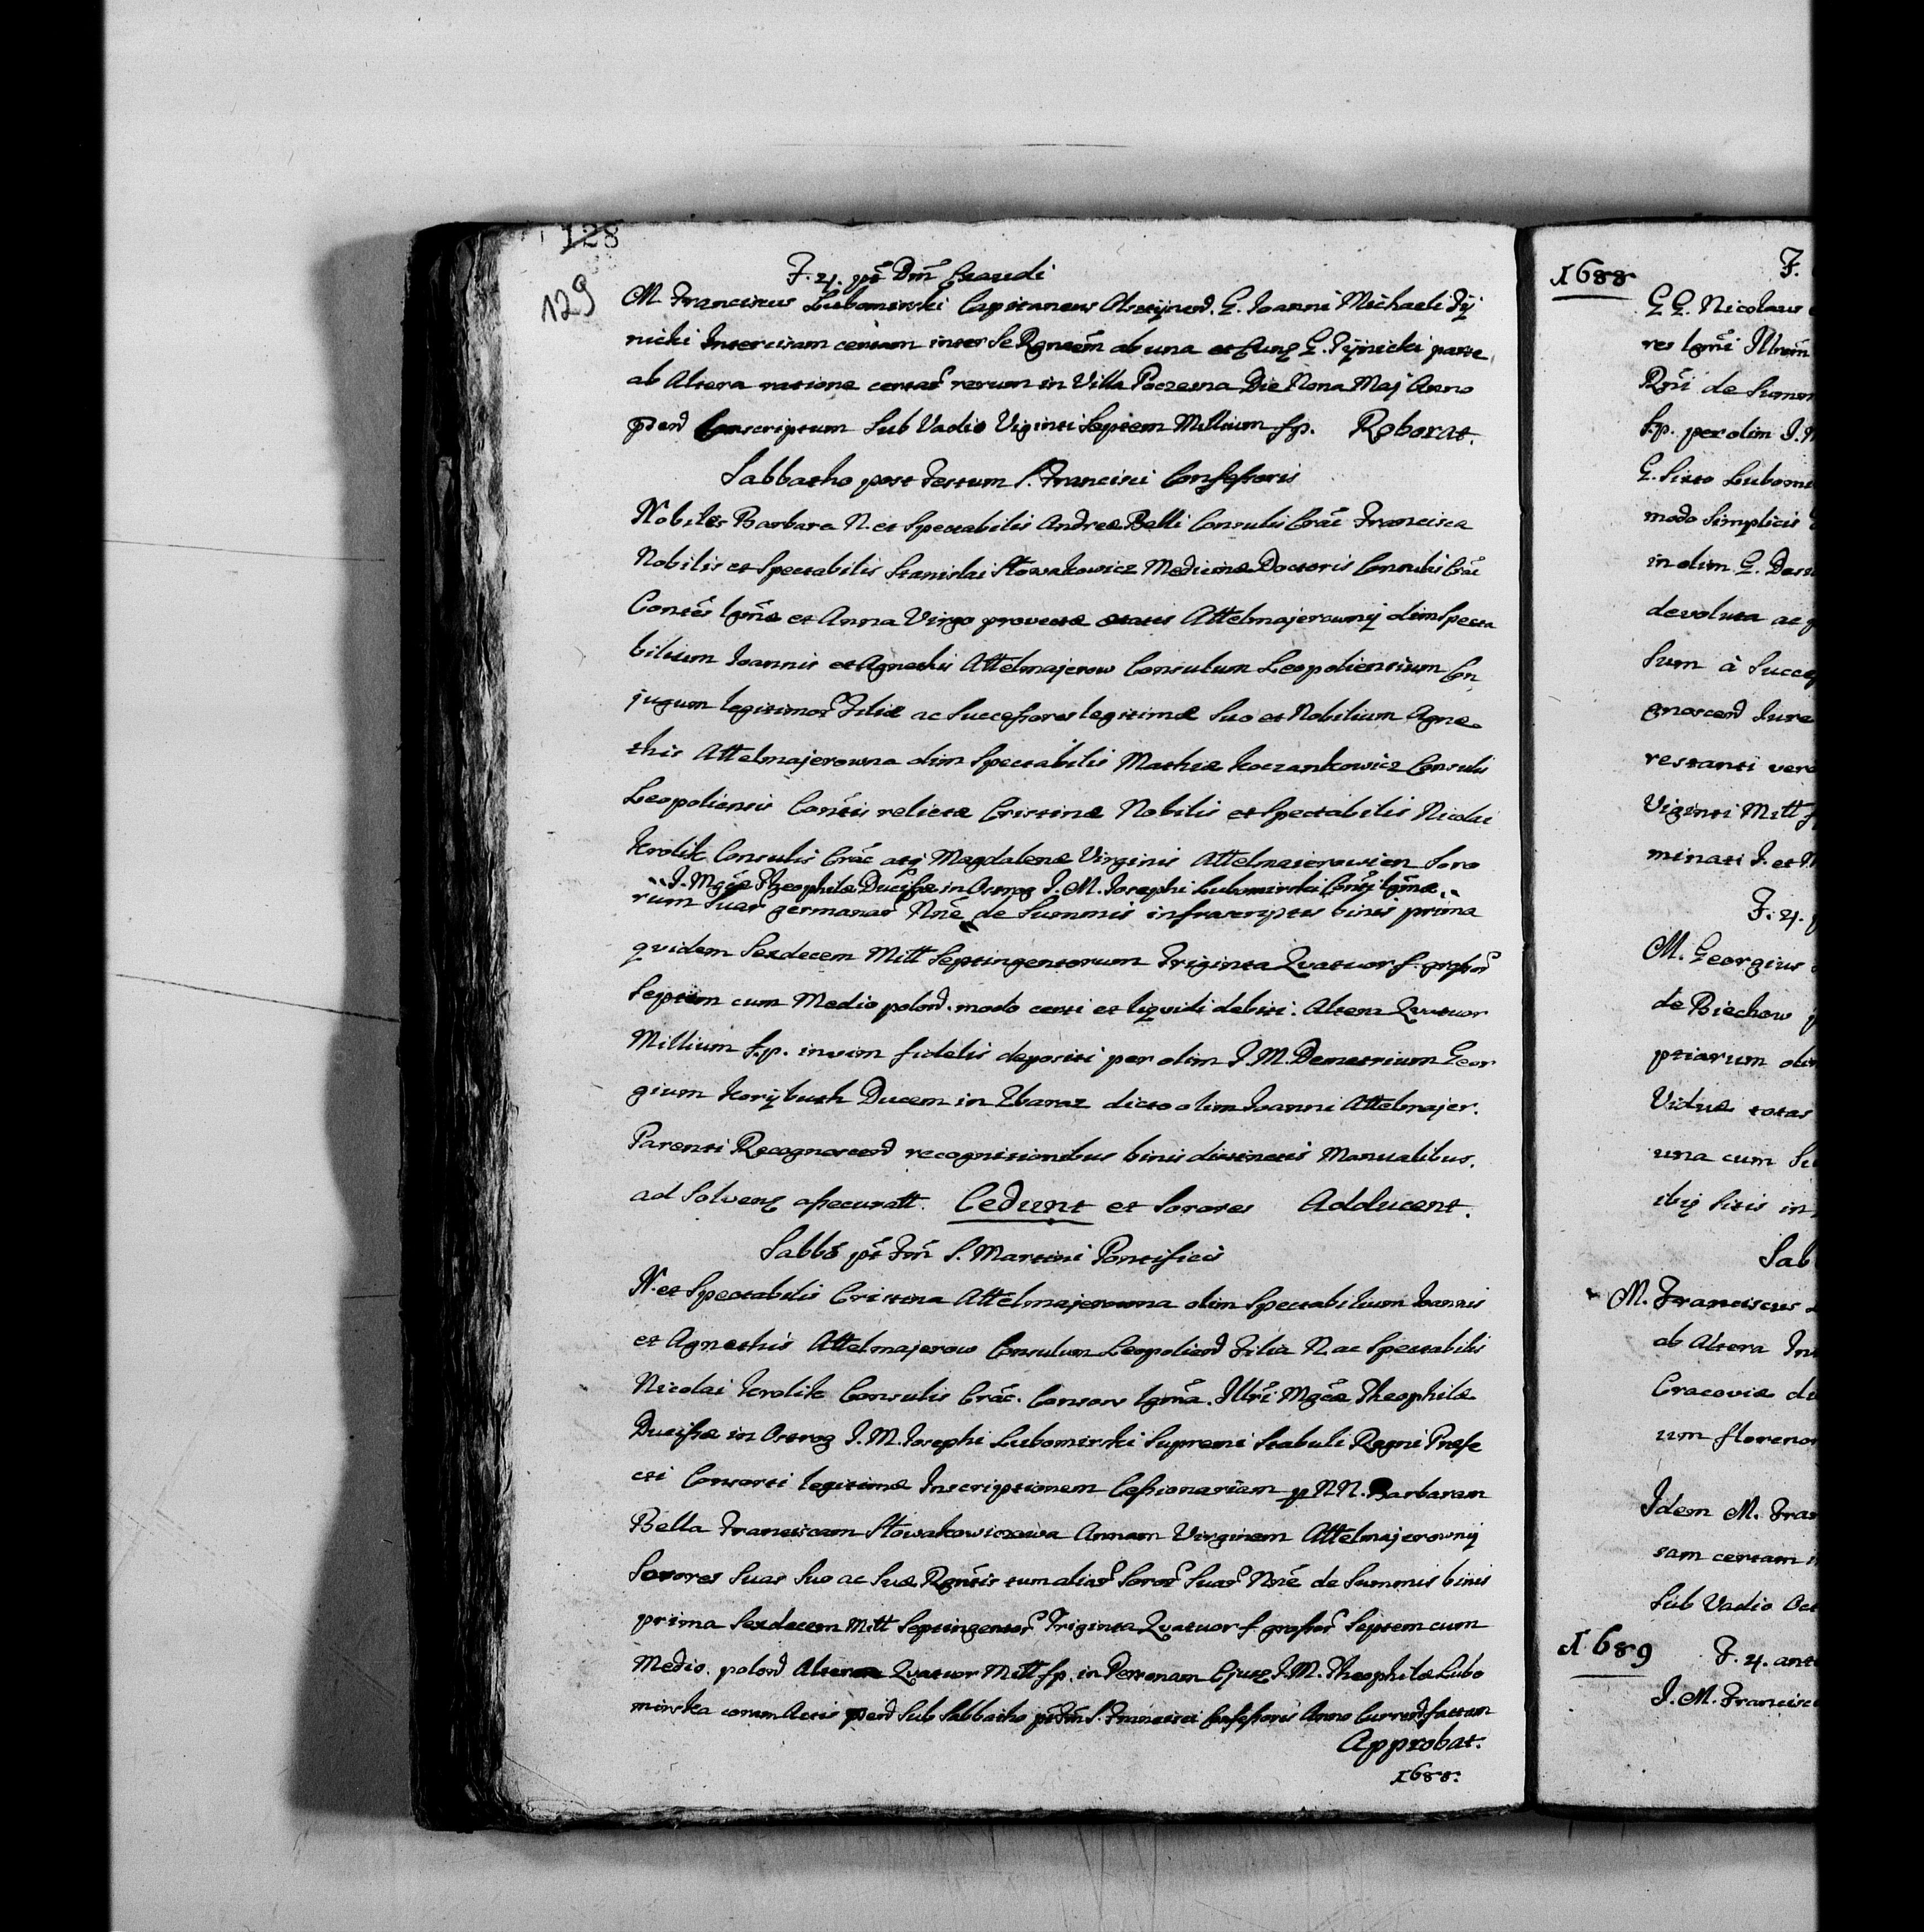 128
129
F. 4. pt Dm Exaudi
M. Franciscus Lubomirski Capitaneus Olsztynen. G. Joanni Michaeli Ty
nicki Intercisam certam inter Se Rgntem ab una et Eunq G. Tynicki parte
ab Altera ratione certar rerum in Villa Poczesna Die Nona Maj Anno
pden Conscriptum Sub Vadio Viginti Septem Millium fp. Roborat.
Sabbatho post Festum S. Francisci Confessoris
Nobiles Barbara N. et Spectabilis Andreæ Belli Consulis Crac Francisca
Nobilis et Spectabilis Stanislai Słowakowicz Medicinæ Doctoris Consulis Crac
Contes lgmæ et Anna Virgo provectæ ætatis Attelmajerowny olim Specta
bilium Joannis et Agnethis Attelmajerow Consulum Leopoliensium Con
jugum legitimor Filiæ ac Successores legitimæ Suo et Nobilium Agne
this Attelmajerowna olim Spectabilis Mathiæ Koczankowicz Consulis
Leopoliensis Contis relictæ Cristinæ Nobilis et Spectabilis Nicolai
Krolik Consulis Crac atq Magdalenæ Virginis Attelmaierowien Soro
I. Mgcæ Theophilæ Ducissæ in Ostrog I. M. Josephi Lubomirski Conti lgmæ
rum Suar germanar Nne de Summis infrascriptis binis prima
quidem Sexdecem Mill Septingentorum Triginta Quatuor f. grossor
Septem cum Medio polon. modo certi et liquidi debiti. Altera Quatuor
Millium f.p. in vim fidelis depositi per olim I. M. Demetrium Geor
gium Korybuth Ducem in Zbaraz dicto olim Joanni Attelmajer.
Parenti Recognoscen recognitionibus binis distinctis Manualibus.
ad Solvenq assecuratt. Cedunt et Sorores Adducent.
Sabbo pt Fm S. Martini Pontificis
N. et Spectabilis Cristina Attelmajerowna olim Spectabilium Joannis
et Agnethis Attelmajerow Consulum Leopolien Filia N. ac Spectabilis
Nicolai Krolik Consulis Crac. Consors lgma. Illri Mgcæ Theophilæ
Ducissæ in Ostrog I. M. Josephi Lubomirski Supremi Stabuli Regni Præfe
cti Consorti legitimæ Inscriptionem Cessionariam p NN. Barbaram
Bella Franciscam Słowakowiczowa Annam Virginem Attelmajerowny
Sorores Suas Suo ac Suæ Rgntis tum aliar Soror Suar Nne de Summis binis
prima Sexdecem Mill Septingentor Triginta Quatuor f. grossor Septem cum
Medio. polon Altera Quatuor Mill fp. in Personam Ejusq I. M. Theophilæ Lubo
mirska coram Actis pden Sub Sabbatho pt Fm S. Francisci Confessoris Anno Curren factam
Approbat.
1688.
1688
F.
G G. Nicolaus
res lgmi Illrem
Rni de Summ
f.p. per olim I. M
G. Sixto Lubomi
modo Simplicis
in olim G. Dom
devoluta ac
Sum à Succes
gnoscen Iure
restanti vero
Viginti Mill f
minati I. et M
F. 4. p
M. Georgius
de Biechow
ptiarum olim
Viduæ totas
una cum
ibq Sitis in
Sab
M. Franciscus
ab Altera Int
Cracoviæ di
um florenor
Idem M. Fran
sam certam i
Sub Vadio Oct
1689
F. 4. ant
I. M. Francisc